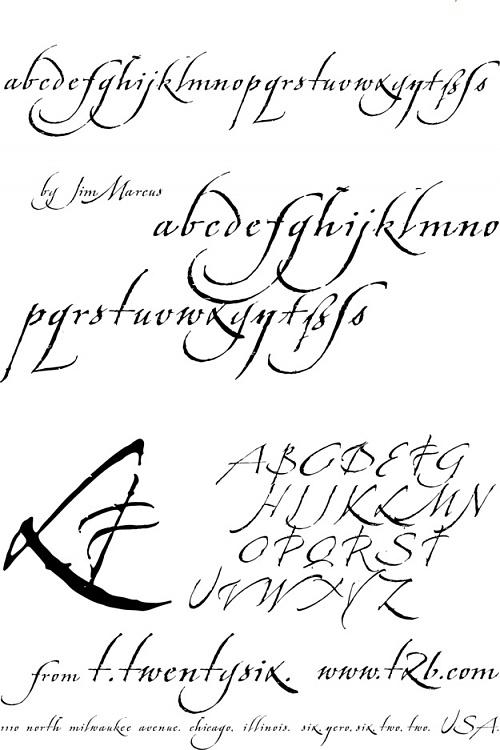 abcdefghijklmnopqrstuvwxyz
by Jim Marcus
abcdefghijklmno
pqrstuvwxyz
ABCDEFG
HIJKLMN
OPQRST
UVWXYZ
from t.twentysix. www.t26.com
1110 north milwaukee avenue. chicago. illinois. six.zero.six.two.two. USA.